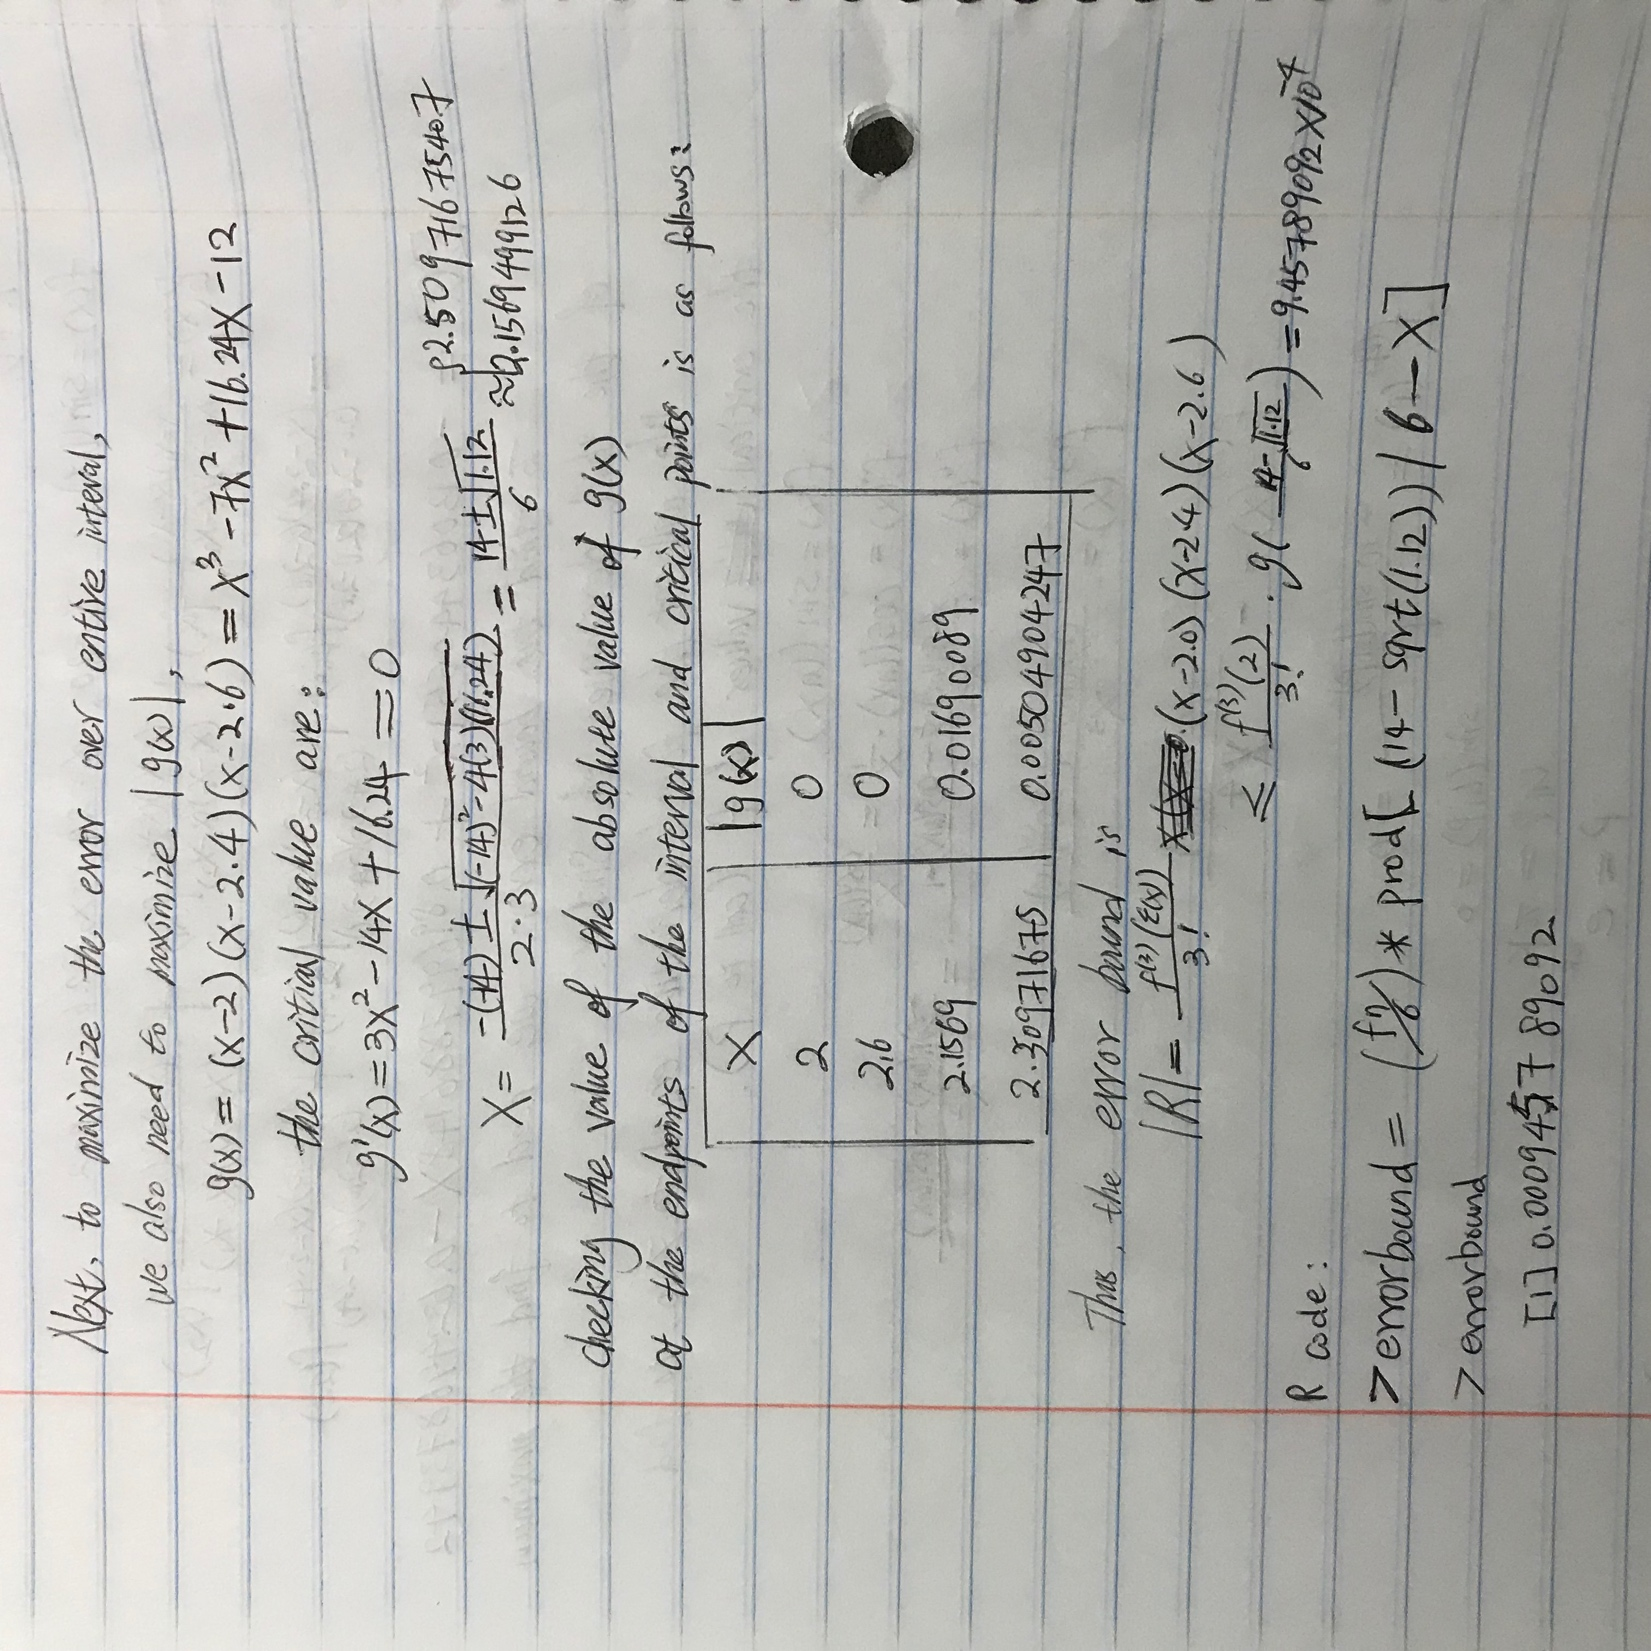 Next, to maximize the error over entire interval,
we also need to maximize |g(x)|,
g(x) = (x-2)(x-2.4)(x-2.6) = x³ -7x² +16.24x -12
the critial value are:
g'(x) = 3x² -14x +16.24 = 0
x = -(-14) ± √(-14)² -4(3)(16.24) / 2·3 = 14 ± √1.12 / 6 ≈ { 2.50971675407
2.1569499126
Checking the value of the absolute value of g(x)
at the endpoints of the interval and critical points is as follows:
x |g(x)|
2 0
2.6 0
2.1569 0.01690089
2.30971675 0.00504904247
Thus, the error bound is
|R| = f⁽³⁾(ξ(x)) / 3! (x-2.0)(x-2.4)(x-2.6)
≤ f⁽³⁾(2) / 3! · g( 14-√1.12 / 6 ) = 9.45789092 X10⁻⁴
R code:
> errorbound = (fη/6) * prod[(14 - sqrt(1.12)) / 6 - X]
> errorbound
[1] 0.00094578909 2